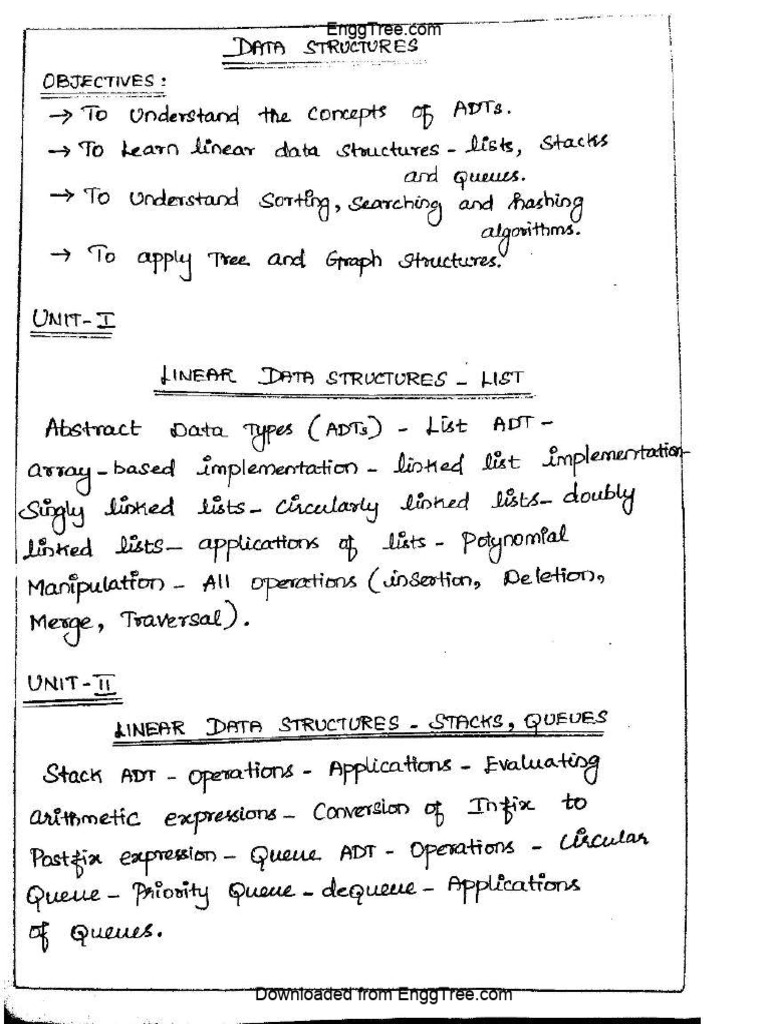 EnggTree.com
DATA STRUCTURES
OBJECTIVES:
→ To Understand the Concepts of ADTs.
→ To Learn linear data structures - lists, Stacks
and Queues.
→ To Understand Sorting, Searching and hashing
algorithms.
→ To apply Tree and Graph Structures.
UNIT-I
LINEAR DATA STRUCTURES - LIST
Abstract Data Types (ADTs) - List ADT -
array-based implementation - linked list implementation-
Singly linked lists - Circularly linked lists - doubly
linked lists - applications of lists - Polynomial
Manipulation - All operations (insertion, Deletion,
Merge, Traversal).
UNIT-II
LINEAR DATA STRUCTURES - STACKS, QUEUES
Stack ADT - Operations - Applications - Evaluating
arithmetic expressions - Conversion of Infix to
Postfix expression - Queue ADT - Operations - Circular
Queue - Priority Queue - deQueue - Applications
of Queues.
Downloaded from EnggTree.com